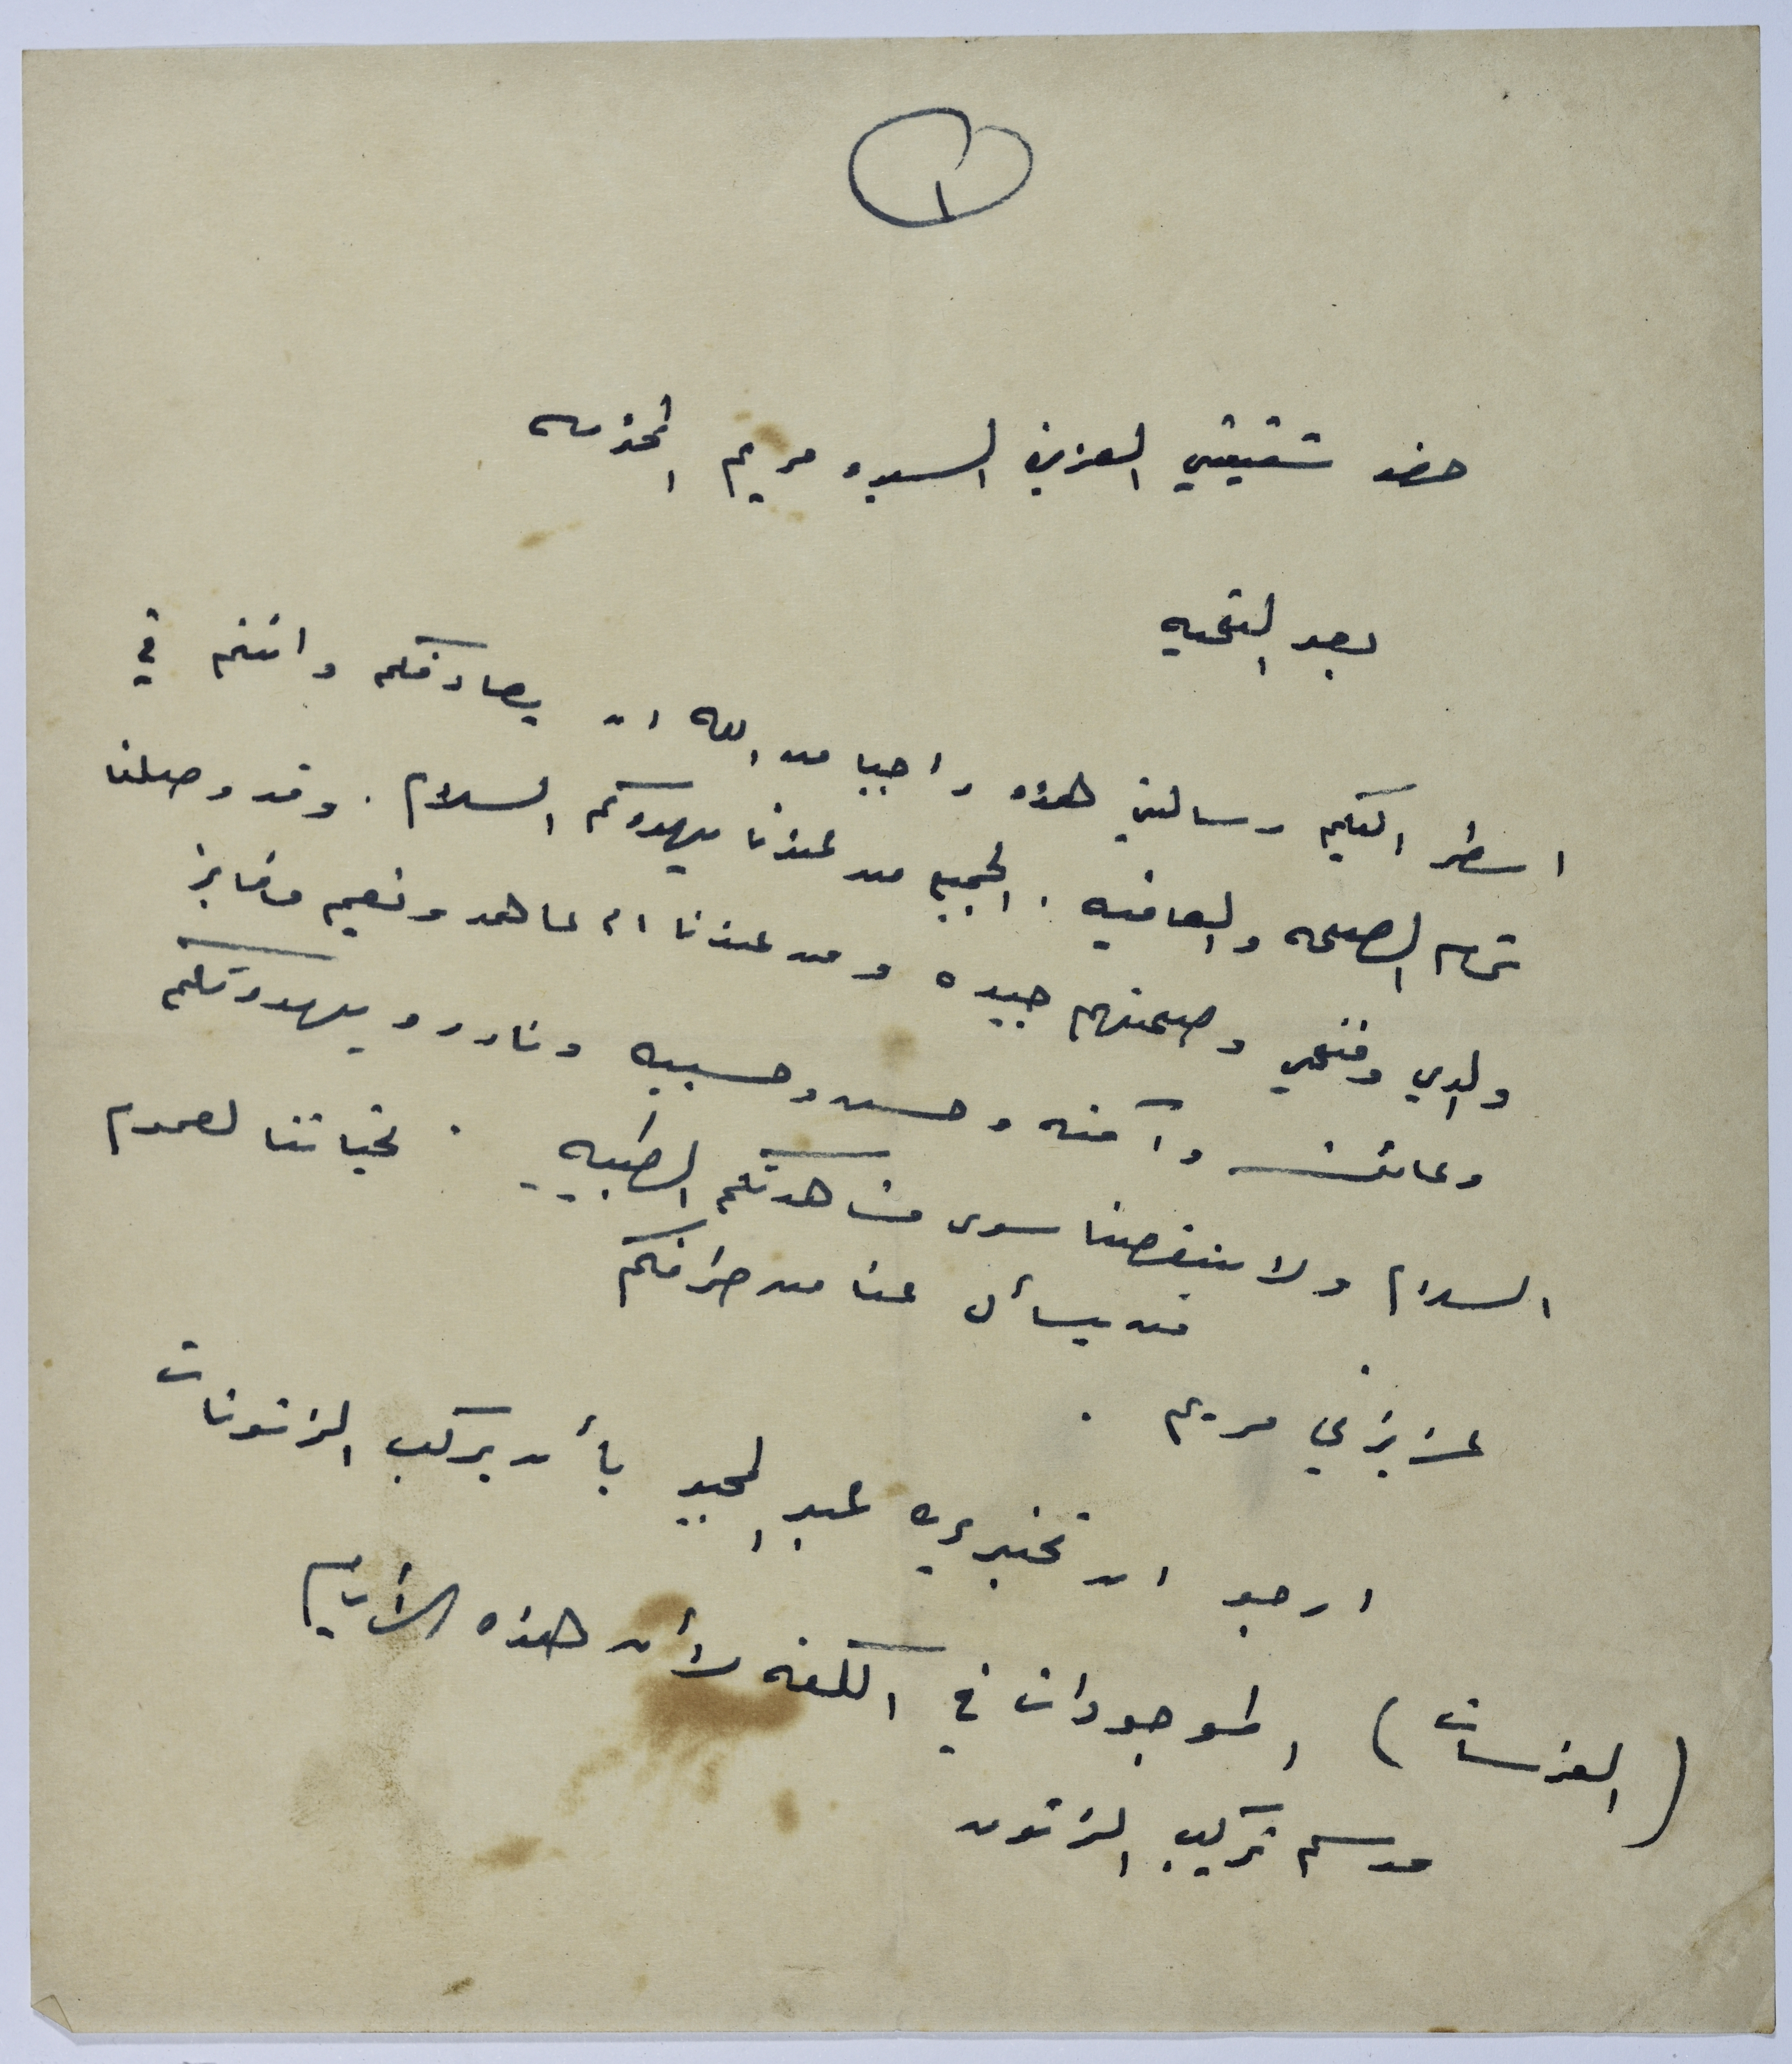 ١
حضرة شقيقتي العزيزه السيده مريم المحترمه
بعد التحيه
اسطر اليكم رسالتي هذه راجيا من الله ان يصادفكم وانتم في
تمام الصحه والعافيه . الجميع من عندنا يهدوكم السلام . وقد وصلنا
والدي وفتحي وصحتهم جيده ومن عندنا ام عاهد ونعيم وفايز
وعائشه وآمنه وحسن وحسيبه ونادر ويهدونكم
السلام ولا ينقصنا سوى مشاهدتكم الطيبه . تحياتنا لعموم
من يسأل عنا من طرفكم
عزيزتي مريم .
ارجو ان تخبري عبد المجيد بأن يركب الزتونات
(الغرسات) الموجودات في اللفه لأن هذه الأيام
موسم تركيب الزتون